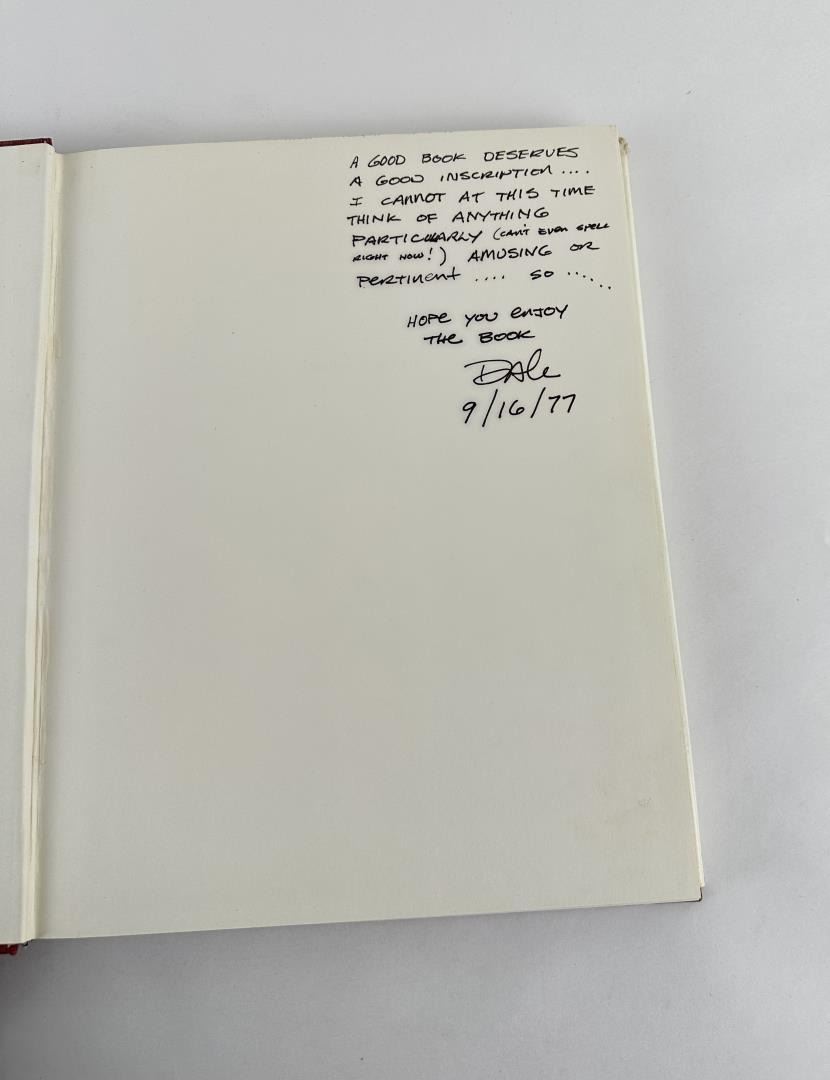 A GOOD BOOK DESERVES
A GOOD INSCRIPTION ....
I CANNOT AT THIS TIME
THINK OF ANYTHING
PARTICULARLY (CAN'T EVEN SPELL
RIGHT NOW!) AMUSING OR
PERTINENT .... SO ......
HOPE YOU ENJOY
THE BOOK
DALE
9/16/77